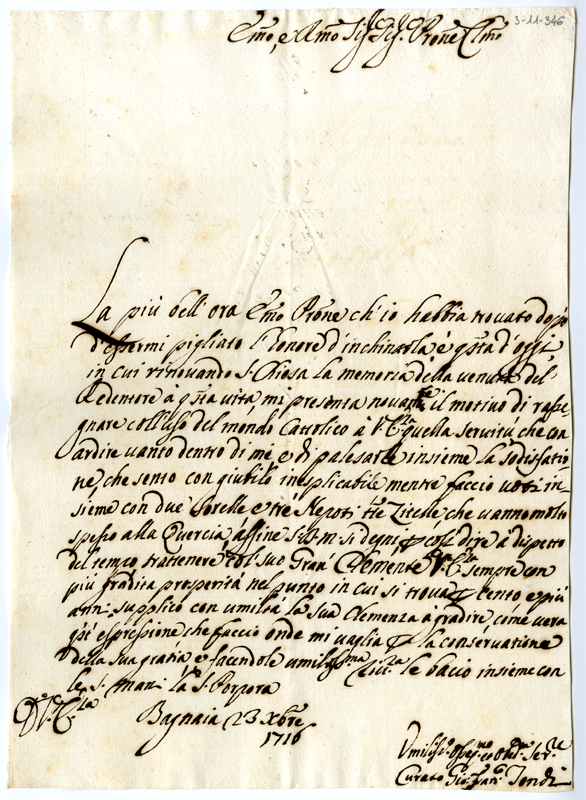 3-11-346
Emo, e Rmo Sig. Sig. Prone Clmo
La più bell'ora Emo Prone ch'io habbia trovato dopo
d'essermi pigliato l'honore d'inchinarla è qsta d'oggi
in cui rinovando S. Chiesa la memoria della venuta del
Redentore à qsta vita, mi presenta novamte il motivo di rasse
gnare coll'uso del mondo Cattolico à V. Eza quella servitù, che con
ardire vanto dentro di me, e di palesarle insieme la sodisfatio
ne, che sento con giubilo inesplicabile mentre faccio voti in
sieme con due Sorelle e tre Nepoti tte Zitelle, che vanno molto
spesso alla Quercia, affine S. D. M. si degni p così dire à dispetto
del tempo trattenere col suo Gran Clemente V. Eza sempre con
più gradita prosperità nel punto in cui si trova p cento e più
anni, supplico con umiltà la sua Clemenza à gradire come vera
qsta espressione che faccio onde mi vaglia p la conservatione
della sua gratia e facendole umilissma le bacio insieme con
le S. mani la S. Porpora
D. V. Eza
Bagnaia 23 Xbre
1716
Umiliss. et Obl. Serre
Curato Gio. Fran. Tondi